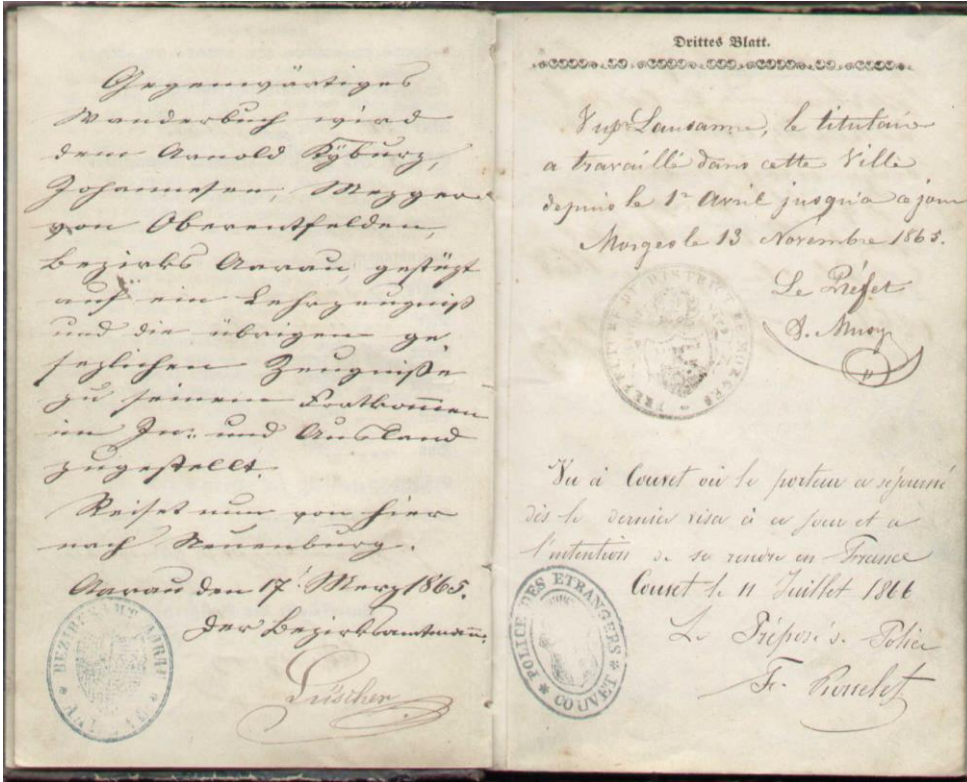 Gegenwärtiges
Wanderbuch wird
dem Arnold Kyburz,
Johannesen, Mezger
von Oberentfelden,
Bezirks Aarau, gestüzt
auf ein Lehrzeugniß
und die übrigen ge-
sezlichen Zeugniße
zu seinem Fortkommen
im In- und Ausland
zugestellt.
Reiset nun von hier
nach Neuenburg.
Aarau den 17. Merz 1865.
Der Bezirksamtmann:
Lüscher
BEZIRKSAMT AARAU
Drittes Blatt.
Vu pr Lausanne, le titulaire
a travaillé dans cette Ville
depuis le 1er Avril jusqu'à ce jour
Morges le 13 Novembre 1865.
Le Préfet
PRÉFECTURE DU DISTRICT DE MORGES
Vu à Couvet où le porteur a séjourné
dès le dernier visa à ce jour et a
l'intention de se rendre en France
Couvet le 11 Juillet 1866
Le Préposé de Police
POLICE DES ETRANGERS
COUVET